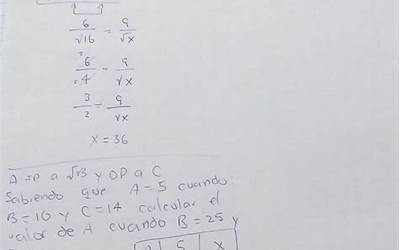 6/√16 = 9/√x
6/4 = 9/√x
3/2 = 9/√x
x = 36
A DP a √B y DP a C
Sabiendo que A = 5 cuando
B = 16 y C = 14 calcular el
valor de A cuando B = 25 y
5 x